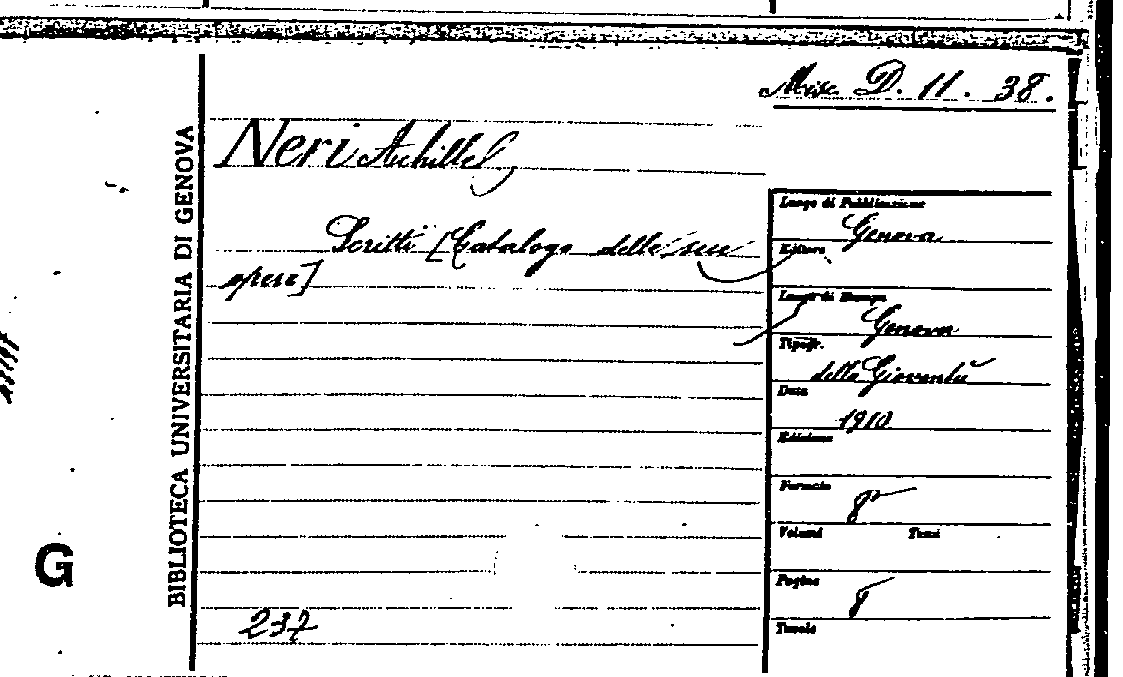 Misc. D. 11. 38.
Neri Achille
Scritti [Catalogo delle sue
opere]
237
BIBLIOTECA UNIVERSITARIA DI GENOVA
G
Luogo di Pubblicazione
Genova
Editore
Luogo di Stampa
Genova
Tipogr.
della Gioventù
Data
1910
Edizione
Formato
8°
Volumi Tomi
Pagine
8
Tavole